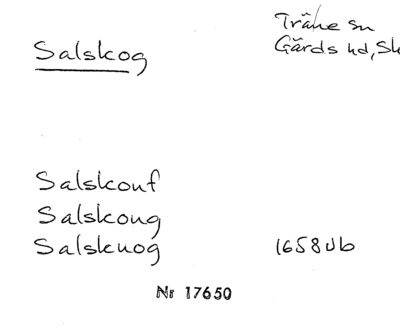 Salskog
Träne sn
Gärds hd, Sk
Salskouf
Salskoug
Salskuog 1658 Jb
Nr 17650